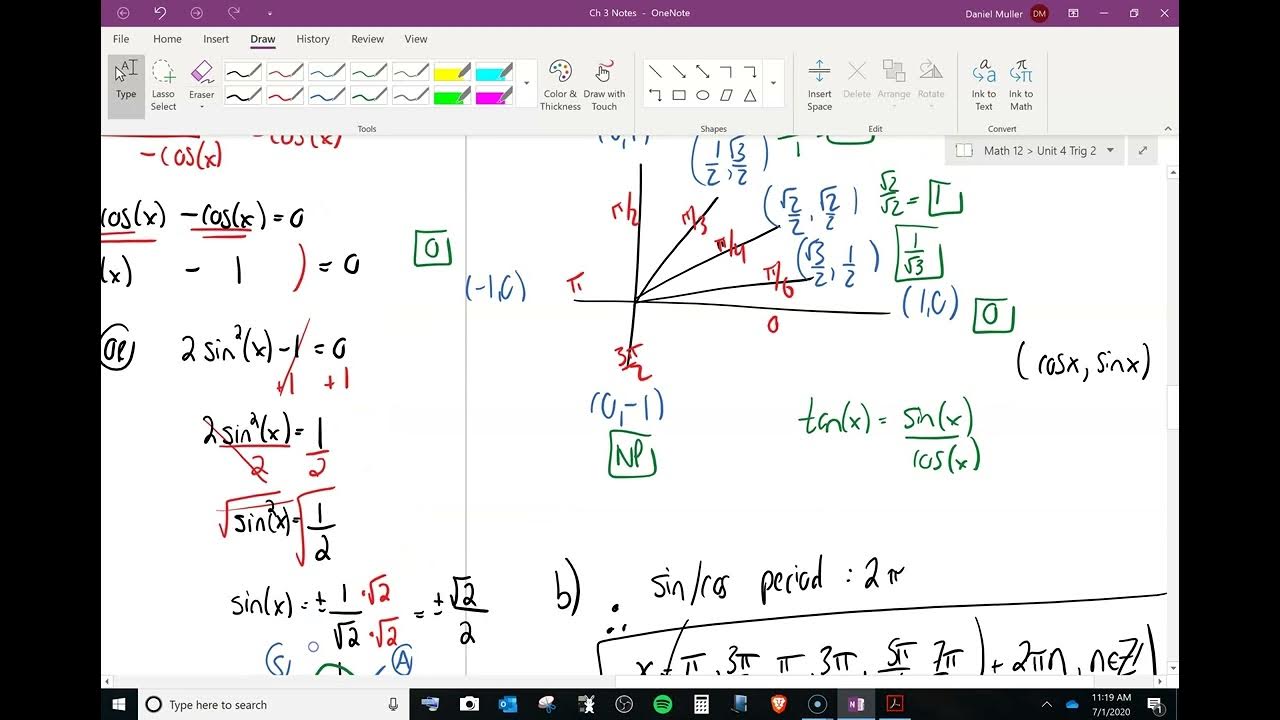 Ch 3 Notes - OneNote
Daniel Muller DM
File Home Insert Draw History Review View
Type Lasso Select Eraser Color & Thickness Draw with Touch Insert Space Delete Arrange Rotate Ink to Text Ink to Math
Tools Shapes Edit Convert
Math 12 > Unit 4 Trig 2
-cos(x)
cos(x) - cos(x) = 0
(x) - 1 ) = 0
2 sin²(x) - 1 = 0
+1 +1
2 sin²(x) = 1
2 2
√sin²(x) = √1/2
sin(x) = ± 1/√2 · √2/√2 = ± √2/2
S A
0
(1/2, √3/2)
π/2
π/3
(√2/2, √2/2) √2/√2 = 1
π/4
(√3/2, 1/2) 1/√3
π/6
(-1,0) π
(1,0) 0
0
3π/2
(0,-1)
NP
(cosx, sinx)
tan(x) = sin(x)/cos(x)
b) sin/cos period : 2π
∴ x = π 3π π 3π 5π 7π ) + 2πn, n∈Z
Type here to search
11:19 AM
7/1/2020